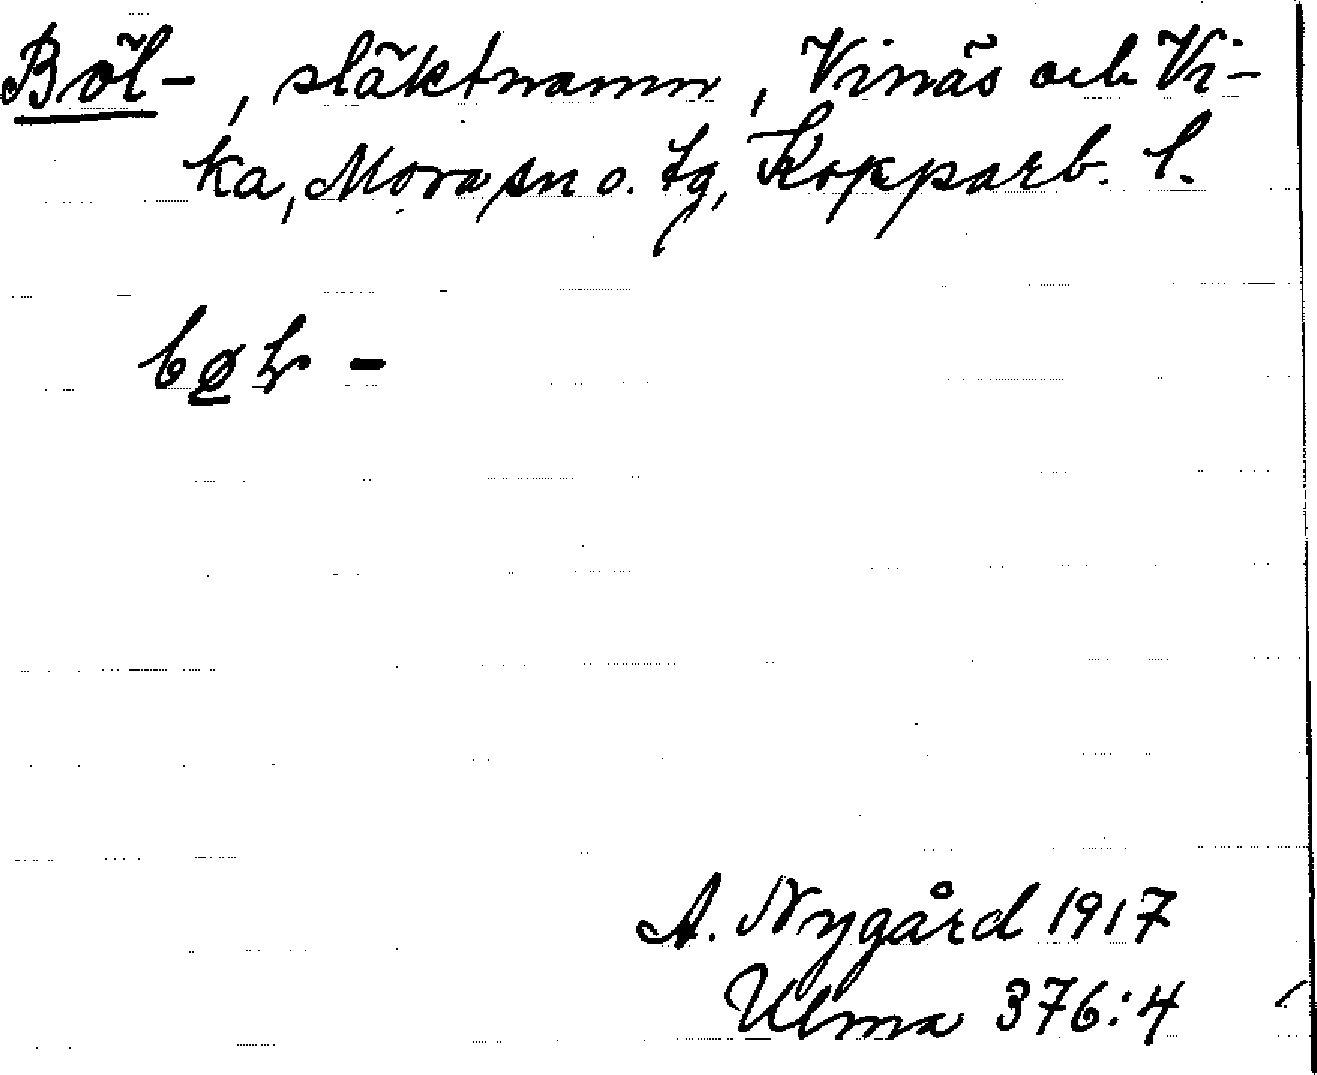 Böl-, släktnamn, Vinäs och Vi-
ka, Mora sn o. tg, Kopparb. l.
A. Nygård 1917
Ulma 376:4